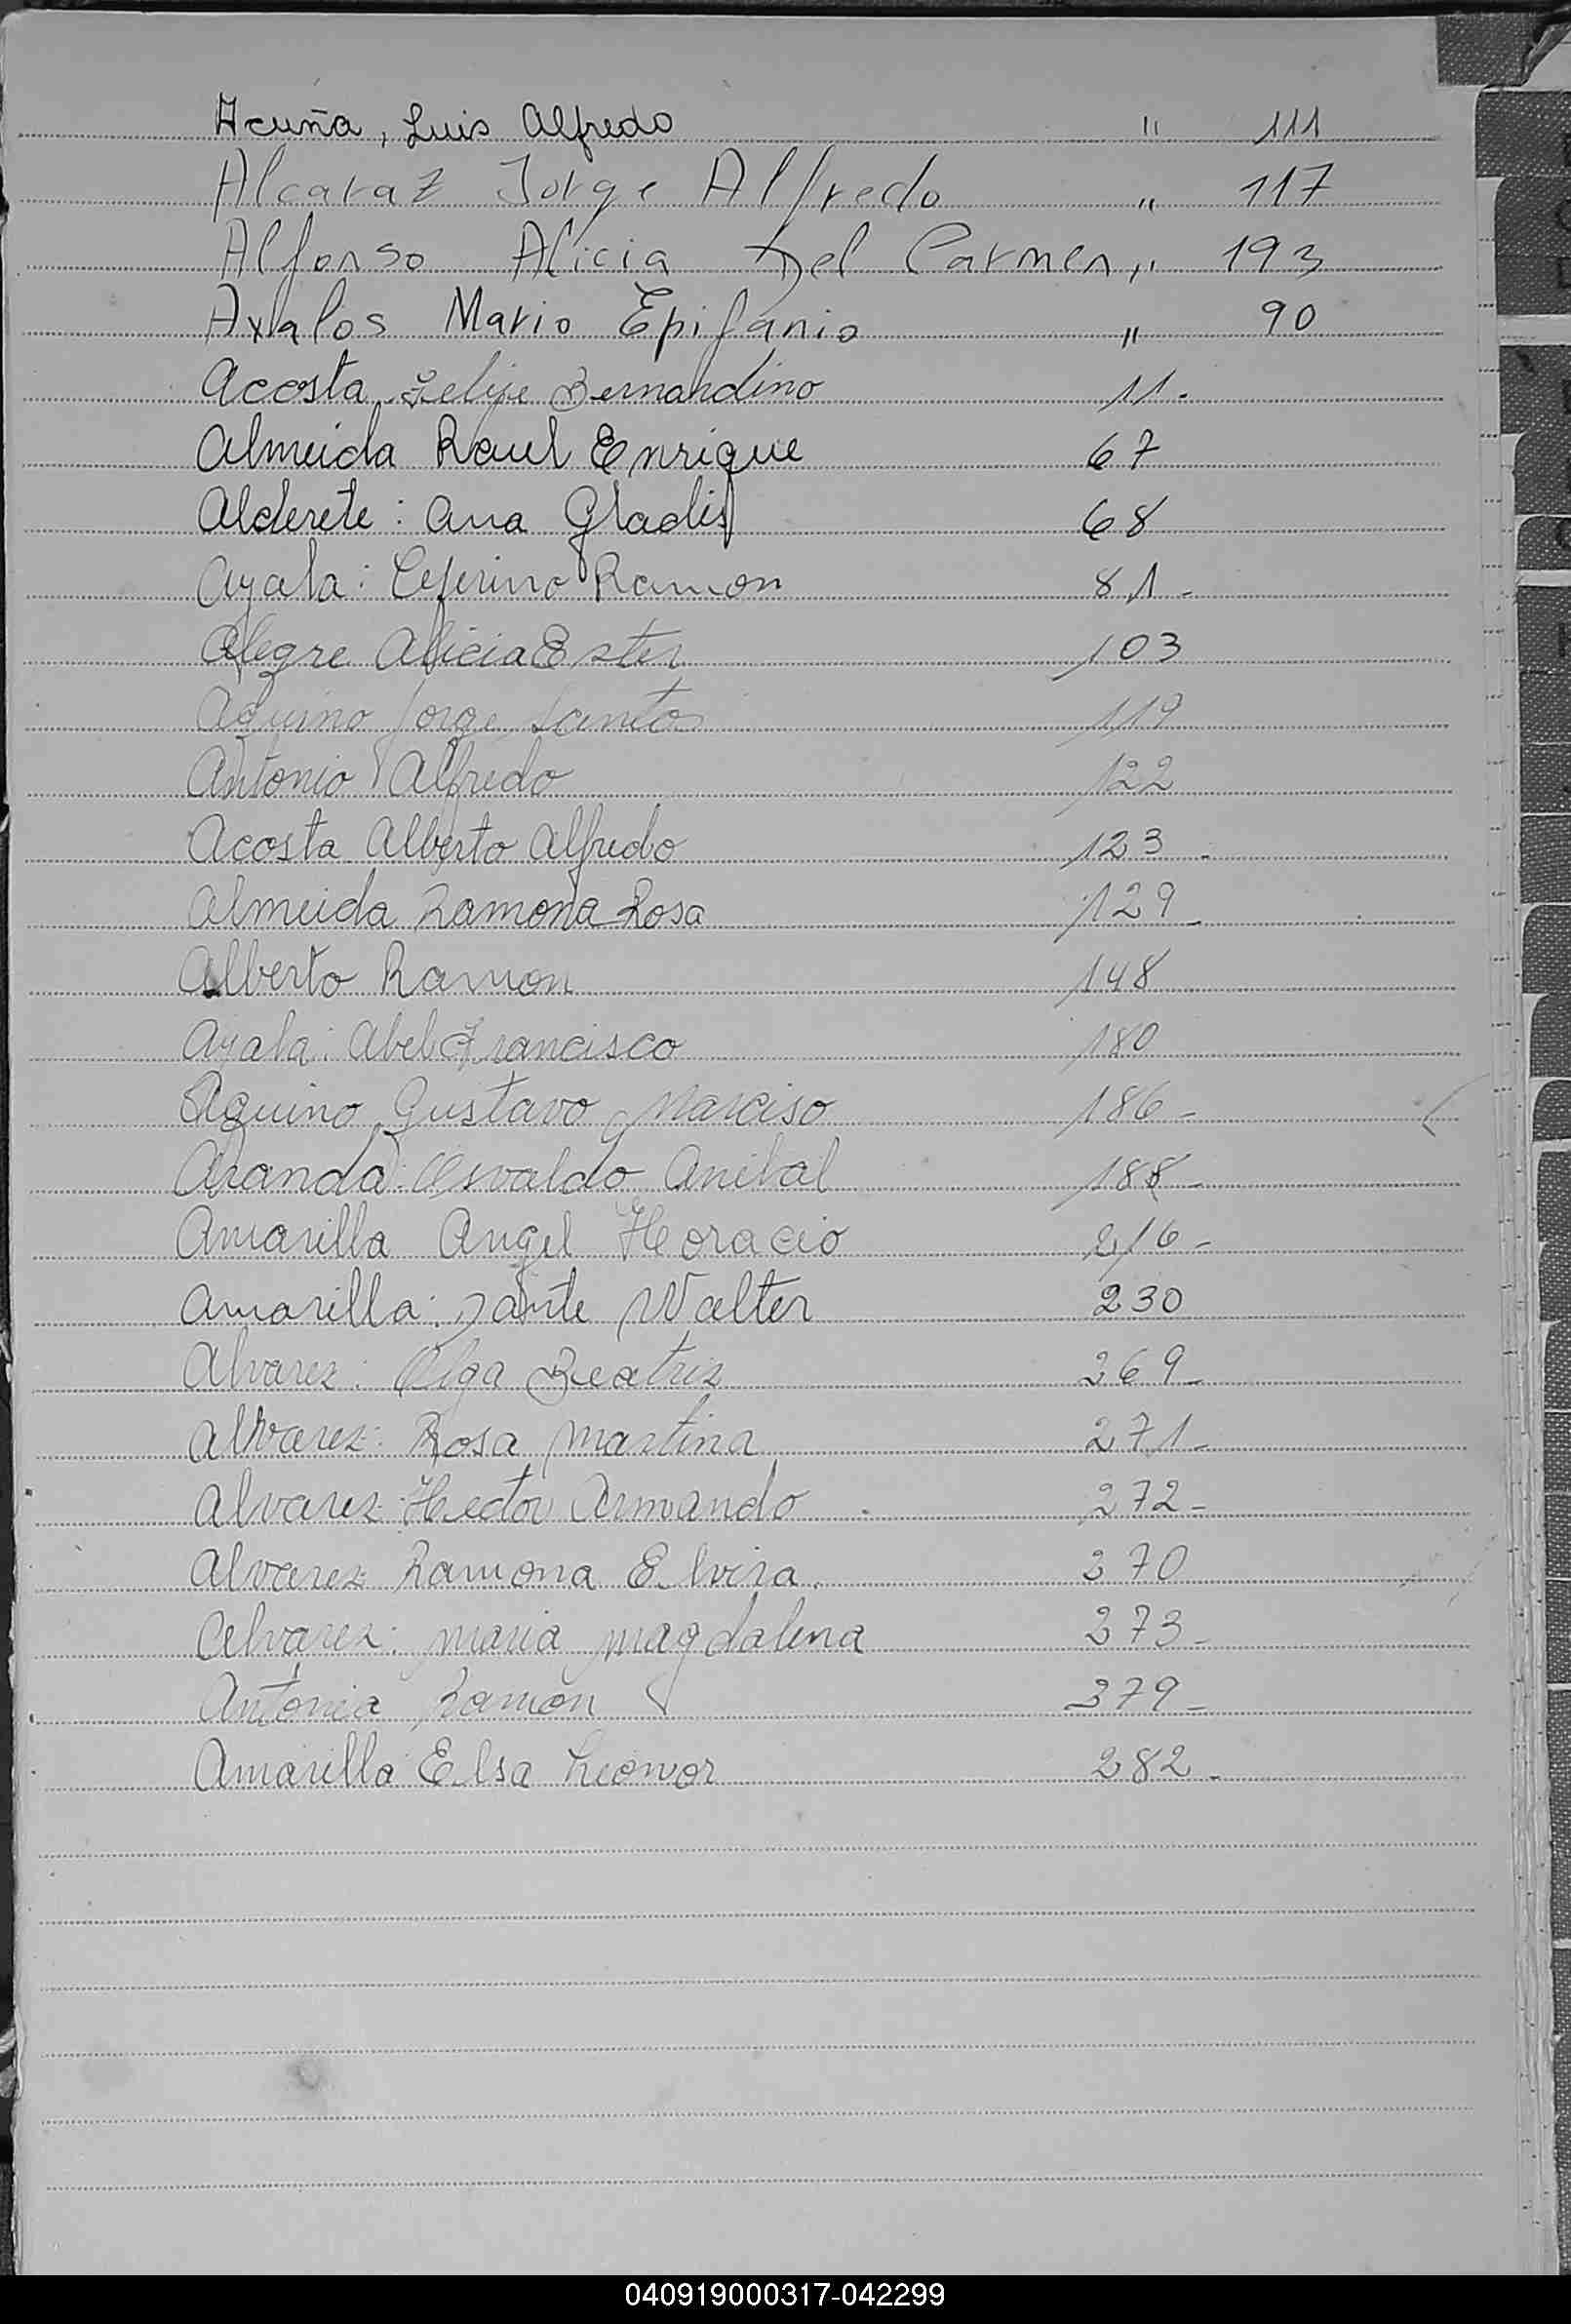 Acuña, Luis Alfredo " 111
Alcaraz Jorge Alfredo " 117
Alfonso Alicia Del Carmen " 193
Axalos Mario Epifanio " 90
Acosta Felipe Bernardino 11.
Almeida Raul Enrique 67
Alderete: Ana Gladis 68
Ayala: Ceferino Ramon 81-
Alegre Alicia Ester 103
Aquino Jorge Santos 119
Antonio Alfredo 122
Acosta Alberto Alfredo 123-
Almeida Ramona Rosa 129-
Alberto Ramon 148
Ayala: Abel Francisco 180
Aquino Gustavo Narciso 186-
Aranda: Osvaldo Anibal 188-
Amarilla Angel Horacio 216-
Amarilla: Dante Walter 230
Alvarez: Olga Beatriz 269-
Alvarez: Rosa Martina 271-
Alvarez: Hector Armando 272-
Alvarez Ramona Elvira. 270
Alvarez: Maria Magdalena 273-
Antonia Ramón 279-
Amarilla Elsa Leonor 282-
040919000317-042299